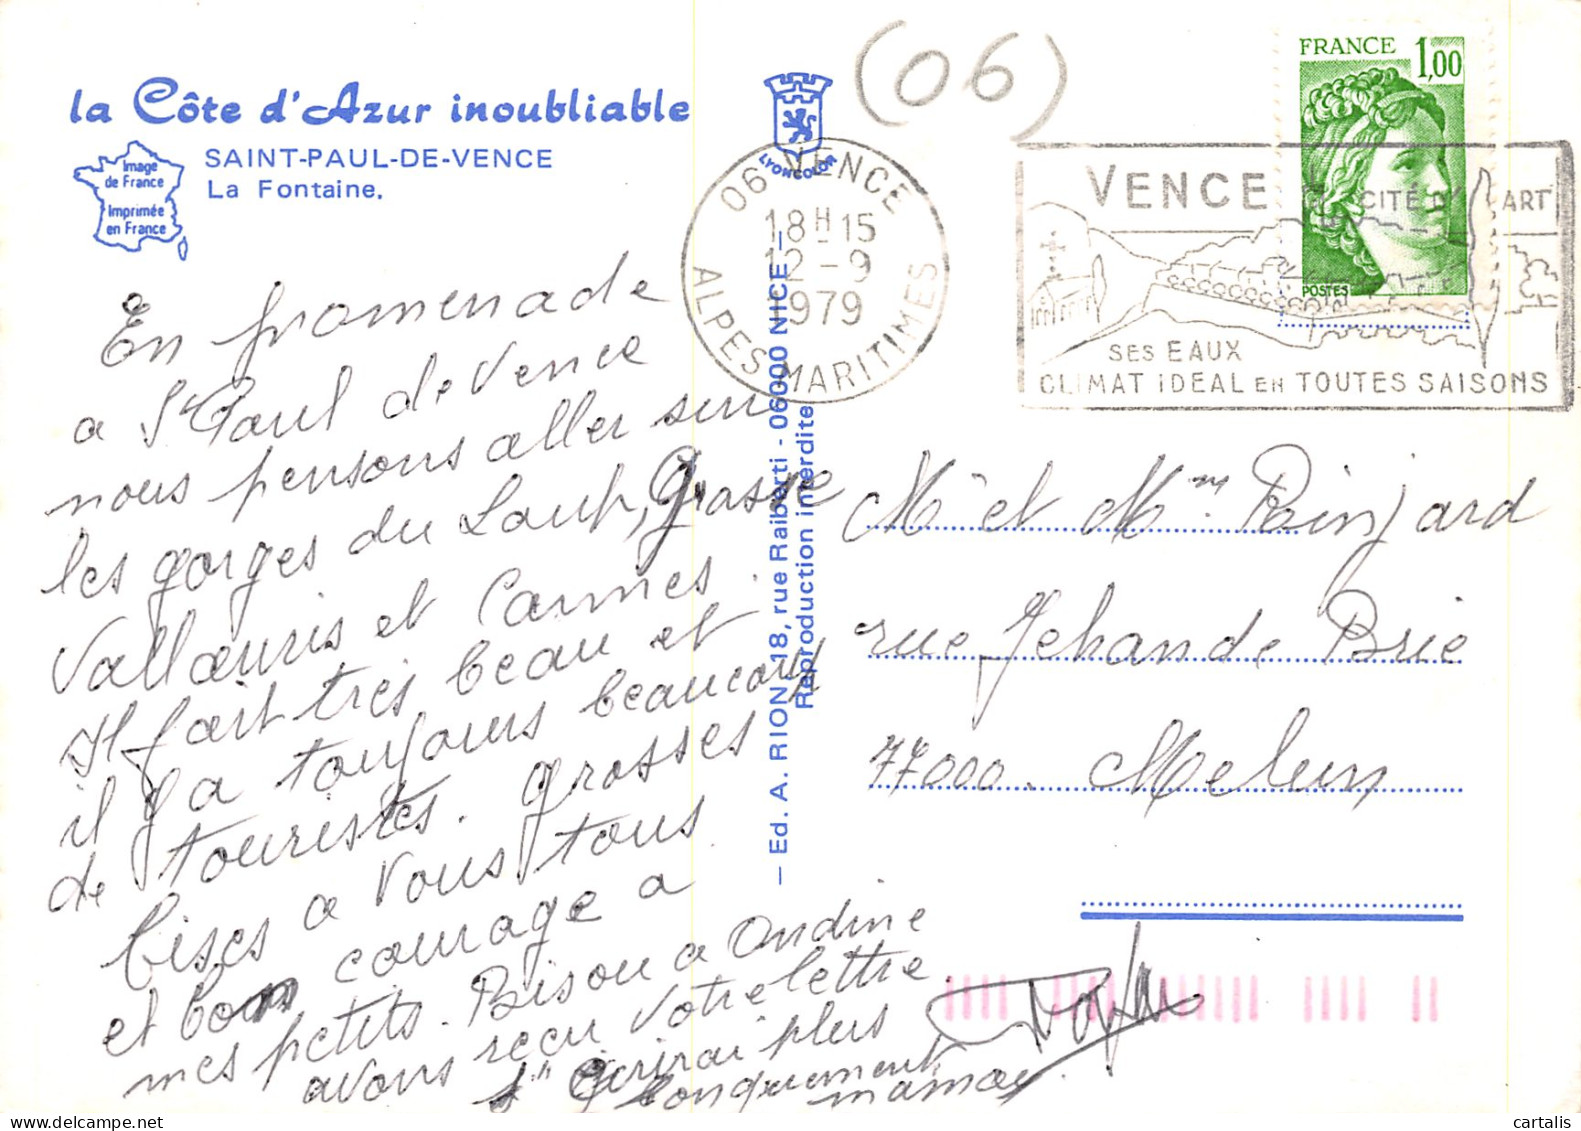 (06)
la Côte d'Azur inoubliable
SAINT-PAUL-DE-VENCE
La Fontaine.
Image
de France
Imprimée
en France
LYONCOLOR
06 VENCE
18H15
12-9
1979
ALPES-MARITIMES
FRANCE 1,00
POSTES
VENCE CITÉ D'ART
SES EAUX
CLIMAT IDEAL EN TOUTES SAISONS
En promenade
a St Paul de Vence
nous pensons aller sur
les gorges du Loup, Grasse
Vallauris et Cannes.
Il fait très beau et
il y a toujours beaucoup
de touristes. Grosses
bises a Vous tous
et bon courage a
mes petits. Bisou a Ondine
avons reçu Votre lettre
J'écrirai plus
longuement
maman
— Ed. A. RION, 18, rue Raiberti - 06000 NICE —
Reproduction interdite
Mr et Mme Rinjard
rue Jehan de Brie
77000. Melun
cartalis